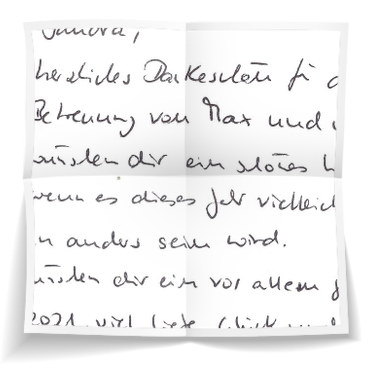 Sandra,
herzliches Dankeschön für d
Betreuung von Max und
wünschen dir ein schönes
wenn es dieses Jahr vielleich
n anders sein wird.
wünschen dir ein vor allem
2021, viel Liebe, Glück und